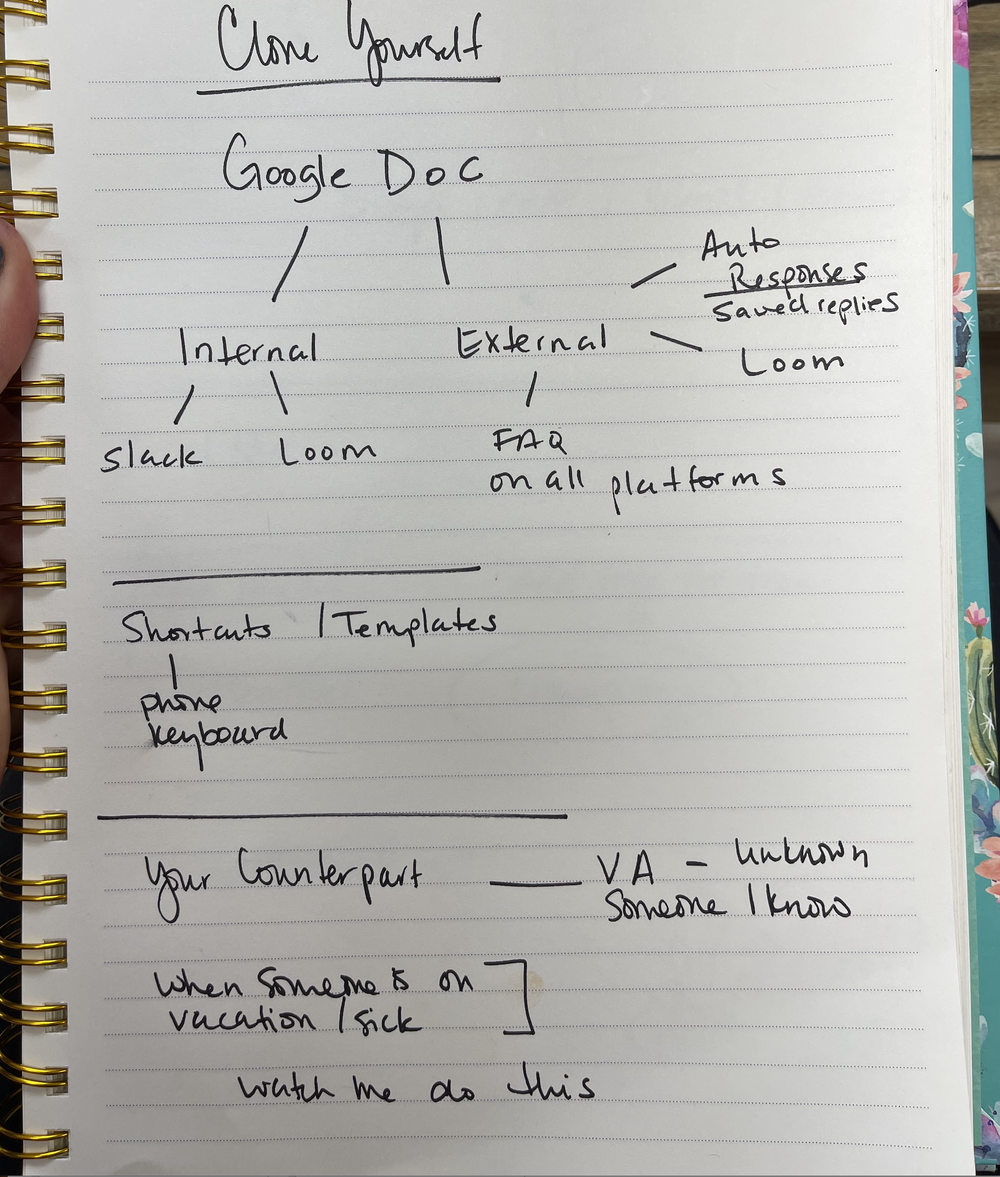 Clone Yourself
Google Doc
Auto
Responses
Saved replies
Internal
External
Loom
Slack
Loom
FAQ
on all platforms
Shortcuts / Templates
phone
keyboard
Your Counterpart — VA - unknown
Someone I know
When Someone is on
vacation / sick
Watch me do this